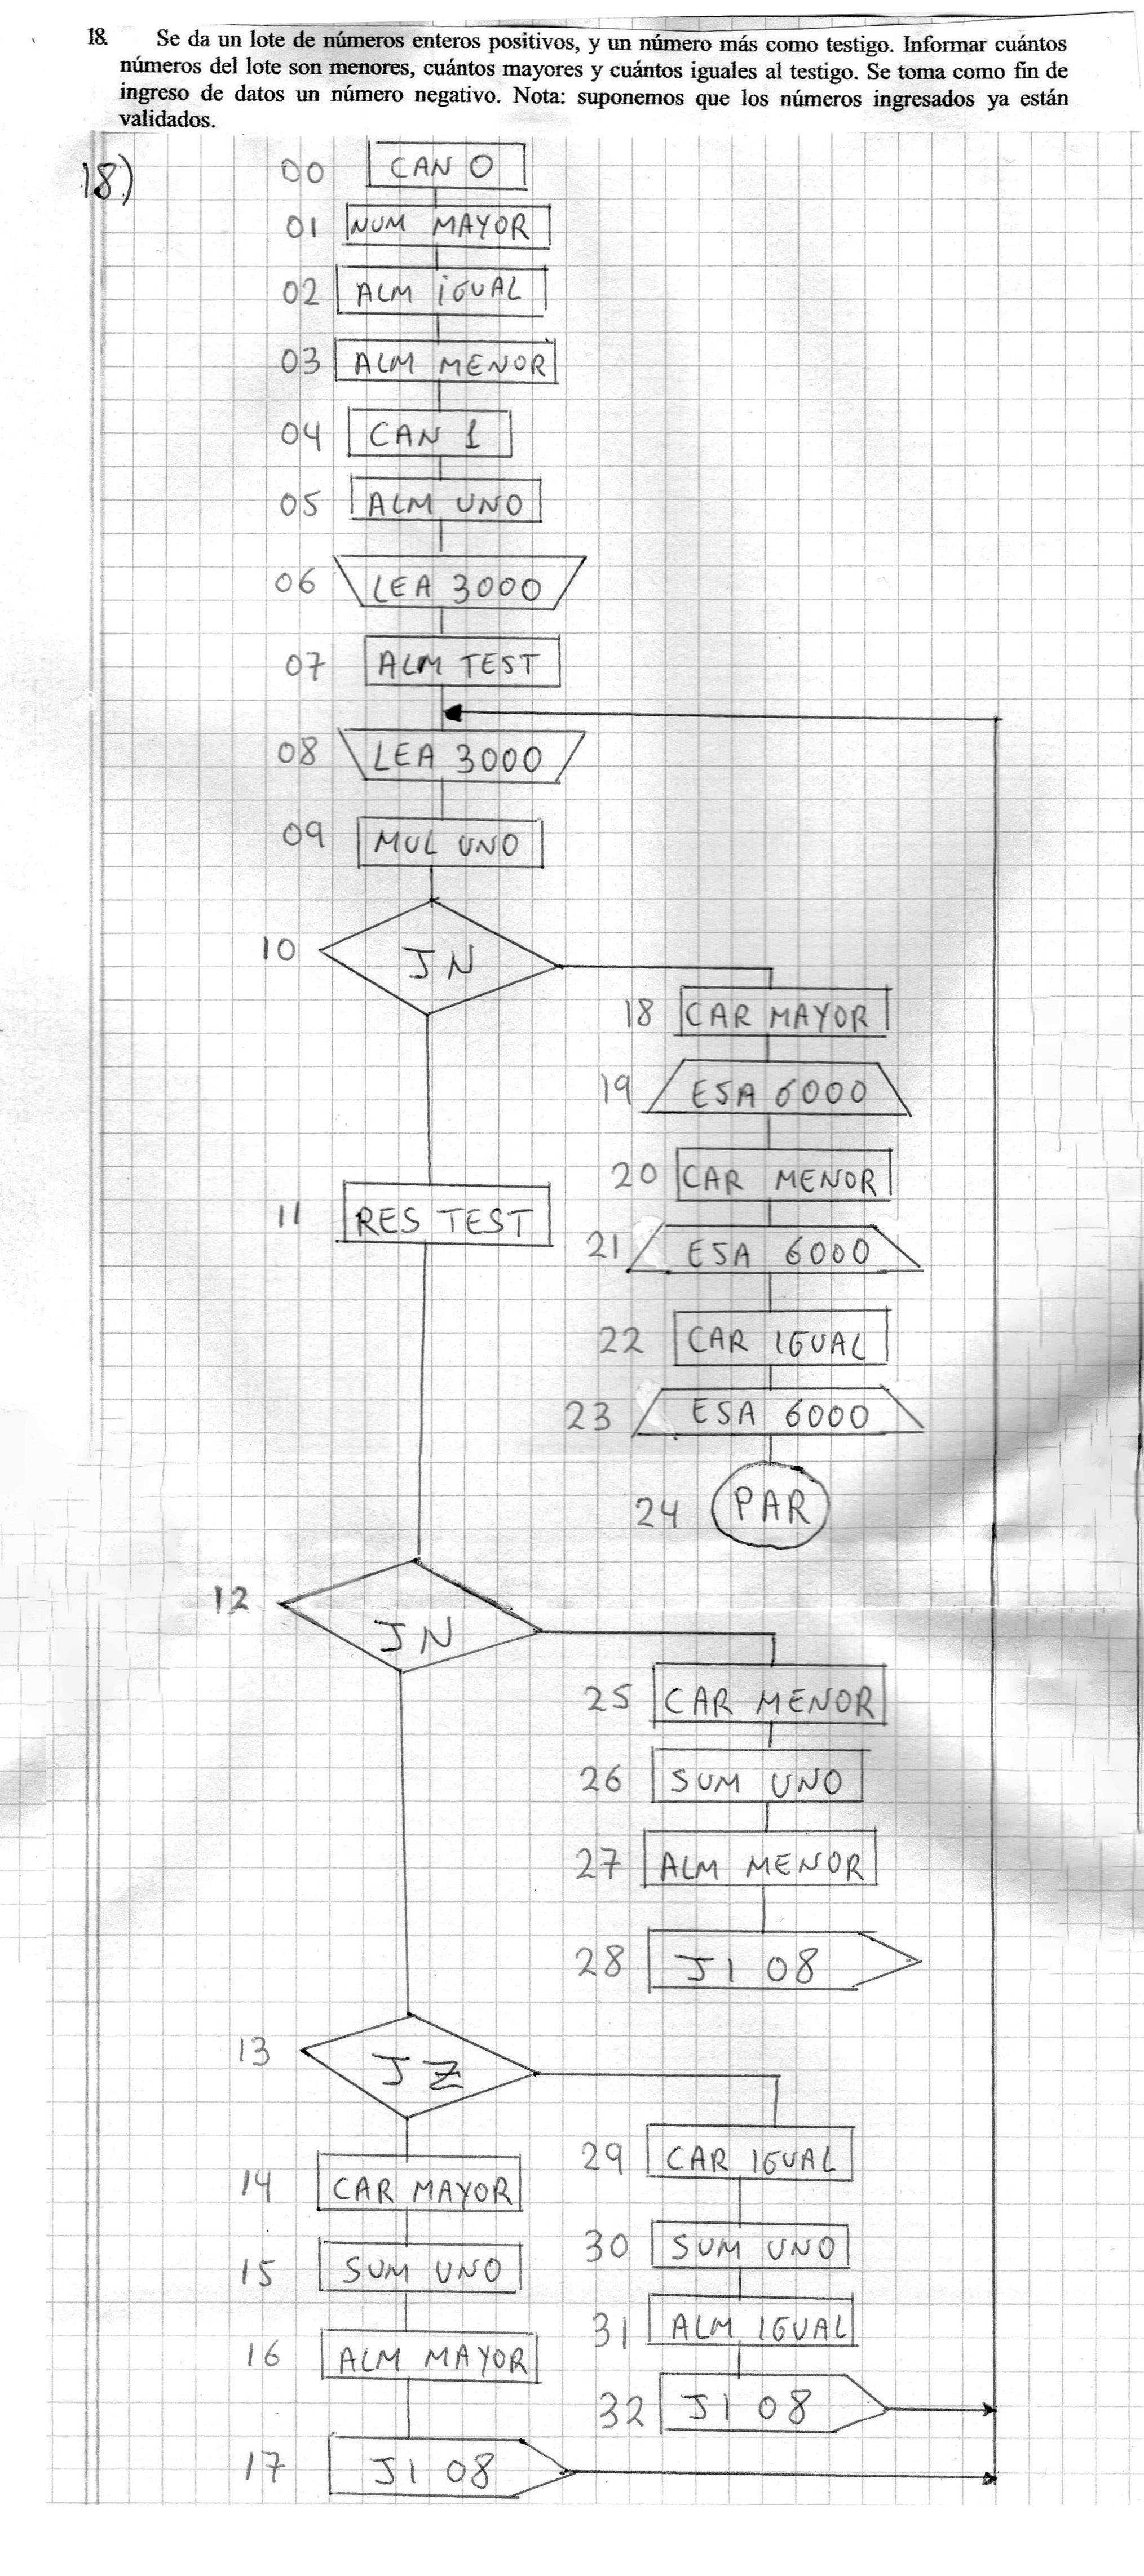 18. Se da un lote de números enteros positivos, y un número más como testigo. Informar cuántos
números del lote son menores, cuántos mayores y cuántos iguales al testigo. Se toma como fin de
ingreso de datos un número negativo. Nota: suponemos que los números ingresados ya están
validados.
18)
00 CAN 0
01 NUM MAYOR
02 ALM IGUAL
03 ALM MENOR
04 CAN 1
05 ALM UNO
06 LEA 3000
07 ALM TEST
08 LEA 3000
09 MUL UNO
10 JN
18 CAR MAYOR
19 ESA 6000
20 CAR MENOR
11 RES TEST
21 ESA 6000
22 CAR IGUAL
23 ESA 6000
24 PAR
12 JN
25 CAR MENOR
26 SUM UNO
27 ALM MENOR
28 JI 08
13 JZ
29 CAR IGUAL
14 CAR MAYOR
30 SUM UNO
15 SUM UNO
31 ALM IGUAL
16 ALM MAYOR
32 JI 08
17 JI 08